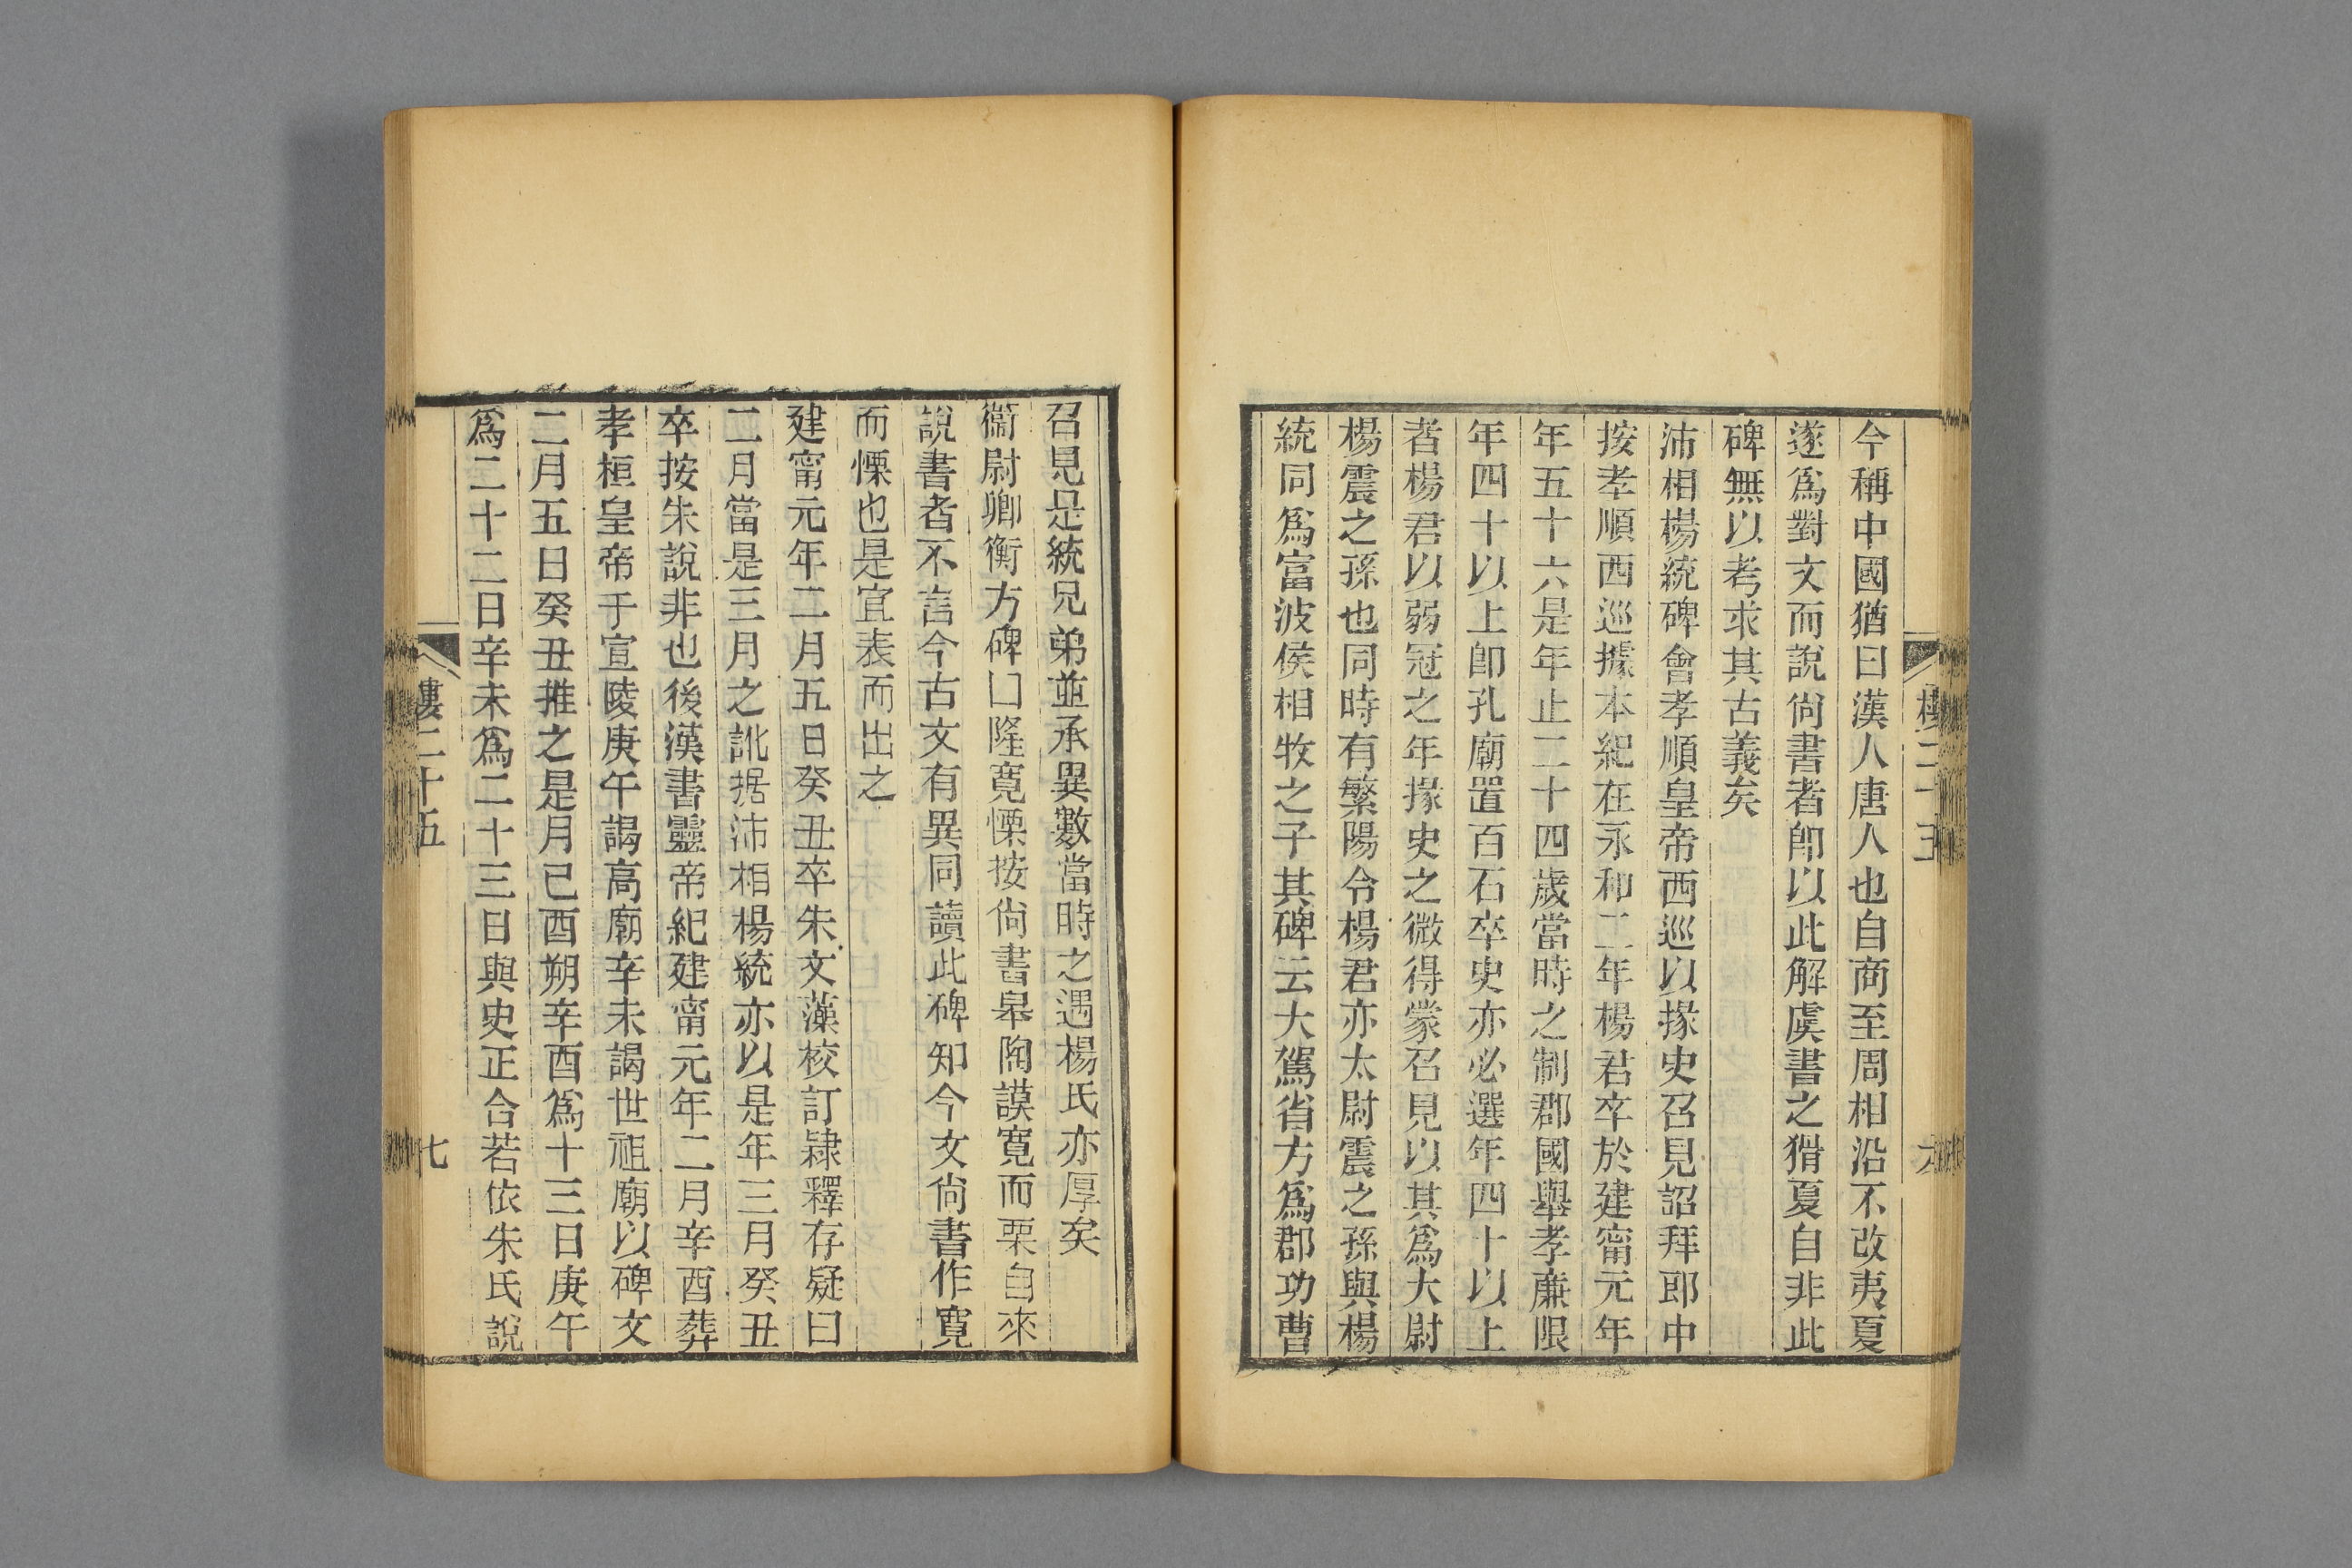 今稱中國猶曰漢人唐人也自商至周相沿不改夷夏
遂爲對文而說尙書者卽以此解虞書之猾夏自非此
碑無以考求其古義矣
沛相楊統碑會孝順皇帝西巡以掾史召見詔拜郎中
按孝順西巡據本紀在永和二年楊君卒於建甯元年
年五十六是年止二十四歲當時之制郡國舉孝廉限
年四十以上卽孔廟置百石卒史亦必選年四十以上
者楊君以弱冠之年掾史之微得蒙召見以其爲大尉
楊震之孫也同時有繁陽令楊君亦太尉震之孫與楊
統同爲富波侯相牧之子其碑云大駕省方爲郡功曹
召見是統兄弟並承異數當時之遇楊氏亦厚矣
衞尉卿衡方碑囗隆寬慄按尙書皋陶謨寬而栗自來
說書者不言今古文有異同讀此碑知今文尙書作寬
而慄也是宜表而出之
建甯元年二月五日癸丑卒朱文藻校訂隷釋存疑曰
二月當是三月之訛据沛相楊統亦以是年三月癸丑
卒按朱說非也後漢書靈帝紀建甯元年二月辛酉葬
孝桓皇帝于宣陵庚午謁高廟辛未謁世祖廟以碑文
二月五日癸丑推之是月己酉朔辛酉爲十三日庚午
爲二十二日辛未爲二十三日與史正合若依朱氏說
樓二十五
七